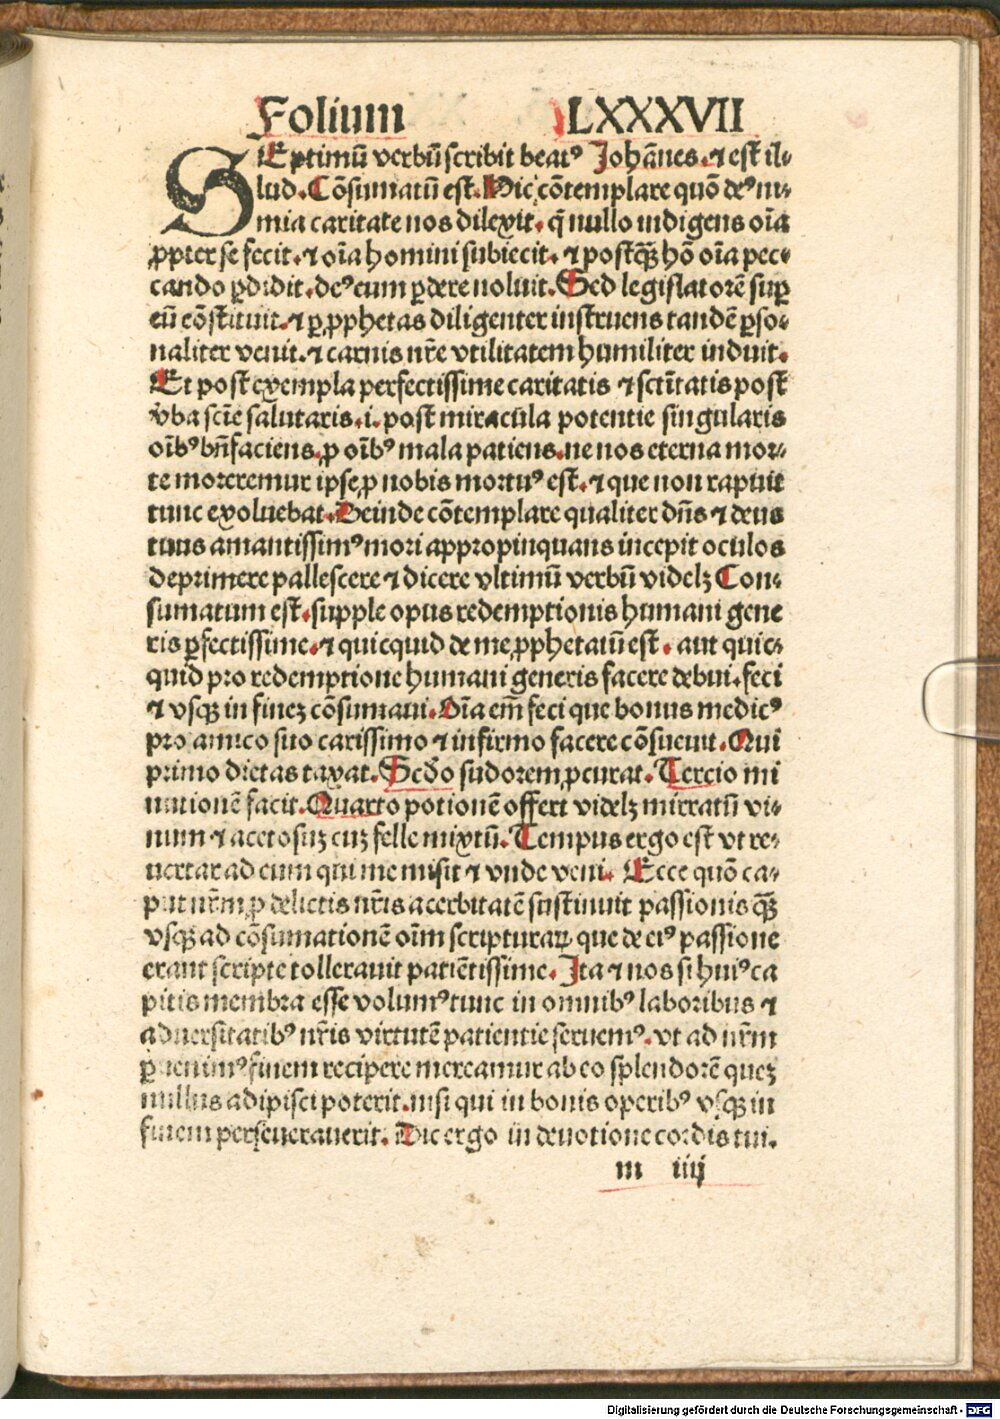 Folium LXXXVII
SEptimū verbū scribit beatꝰ Johānes. ⁊ est il⸗
lud. Cōsumatū est. Hic cōtemplare quō deꝰ ni⸗
mia caritate nos dilexit. q̄ nullo indigens oīa
ꝓpter se fecit. ⁊ oīa homini subiecit. ⁊ postq̄ꝫ hō oīa pec⸗
cando ꝑdidit. deꝰ eum ꝑdere noluit. Sed legislatorē suꝑ
eū cōstituit. ⁊ ꝑ ꝓphetas diligenter instruens tandē ꝑso⸗
naliter venit. ⁊ carnis nr̄e vtilitatem humiliter induit.
Et post exempla perfectissime caritatis ⁊ sctītatis post
v̄ba scīe salutaris. i. post miracula potentie singularis
oībꝰ bn̄faciens. ꝓ oībꝰ mala patiens. ne nos eterna mor⸗
te moreremur ipse ꝓ nobis mortuꝰ est. ⁊ que non rapuit
tunc exoluebat. Deinde cōtemplare qualiter dn̄s ⁊ deus
tuus amantissimꝰ mori appropinquans incepit oculos
deprimere pallescere ⁊ dicere vltimū verbū videlꝫ Con⸗
sumatum est. supple opus redemptionis humani gene
ris ꝑfectissime. ⁊ quicquid de me ꝓphetatū est. aut quic⸗
quid pro redemptione humani generis facere debui. feci
⁊ vsqꝫ in fineꝫ cōsumaui. Oīa em̄ feci que bonus medicꝰ
pro amico suo carissimo ⁊ infirmo facere cōsueuit. Qui
primo dietas taxat. Scdo sudorem ꝓcurat. Tercio mi
nutionē facit. Quarto potionē offert videlꝫ mirratū vi⸗
num ⁊ acetosuꝫ cuꝫ felle mixtū. Tempus ergo est vt re⸗
uertar ad eum qui me misit ⁊ vnde veni. Ecce quō ca⸗
put nr̄m ꝓ delictis nr̄is acerbitatē sustinuit passionis q̄ꝫ
vsqꝫ ad cōsumationē oīm scripturaꝝ que de eiꝰ passione
erant scripte tollerauit patiētissime. Ita ⁊ nos si huiꝰ ca
pitis membra esse volumꝰ tunc in omnibꝰ laboribus ⁊
aduersitatibꝰ nr̄is virtutē patientie seruemꝰ. vt ad nr̄m
ꝑuenimꝰ finem recipere mereamur ab eo splendorē queꝫ
nullus adipisci poterit. nisi qui in bonis operibꝰ vsqꝫ in
finem perseuerauerit. Dic ergo in deuotione cordis tui.
m iiij
Digitalisierung gefördert durch die Deutsche Forschungsgemeinschaft - DFG